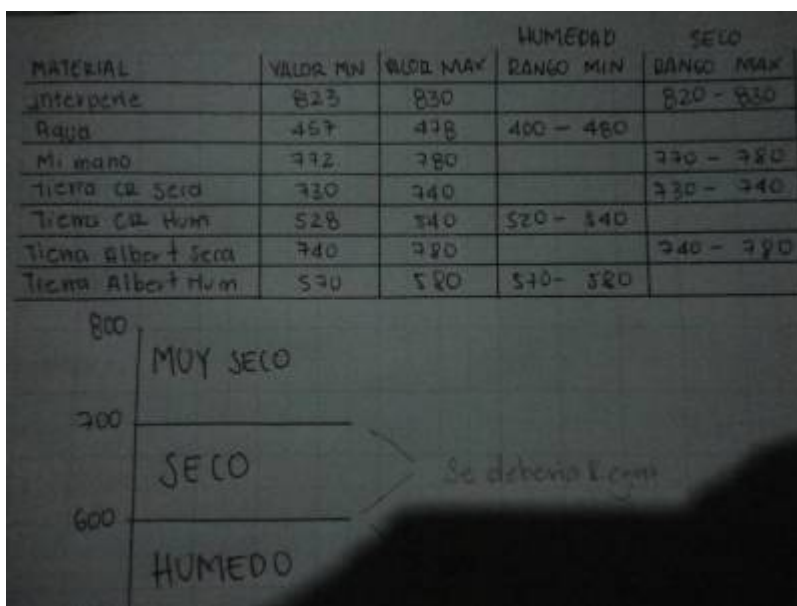 HUMEDAD SECO
MATERIAL VALOR MIN VALOR MAX RANGO MIN RANGO MAX
interperie 823 830 820 - 830
Agua 457 478 400 - 480
Mi mano 772 780 770 - 780
Tierra CR Seca 730 740 730 - 740
Tierra CR Hum 528 540 520 - 540
Tierra Albert Seca 740 780 740 - 780
Tierra Albert Hum 570 580 570 - 580
800
MUY SECO
700
SECO Se deberia
600
HUMEDO